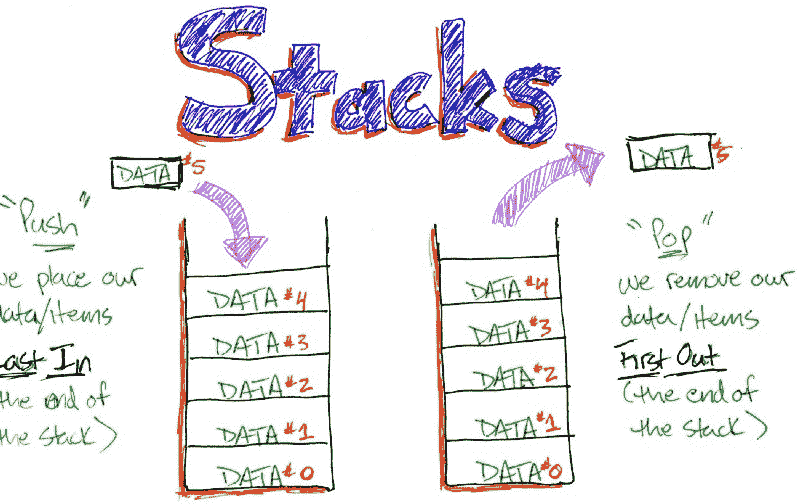 Stacks
DATA #5
"Push"
we place our
data/items
Last In
(the end of
the stack)
DATA #4
DATA #3
DATA #2
DATA #1
DATA #0
DATA #4
DATA #3
DATA #2
DATA #1
DATA #0
DATA #5
"Pop"
we remove our
data/items
First Out
(the end of
the stack)